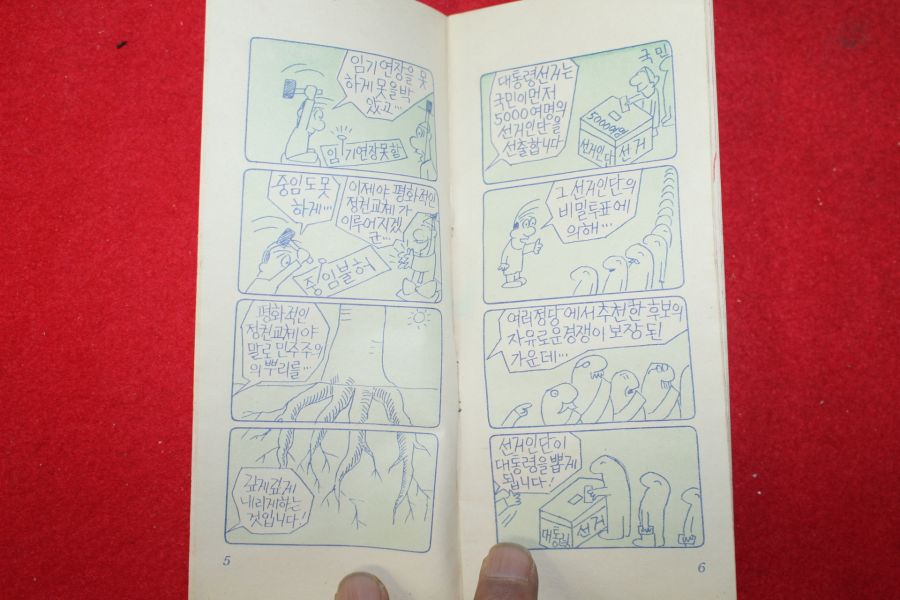 임기연장을 못
하게 못을 박
았고...
임기연장못함
중임도 못
하게...
이제야 평화적인
정권교체가
이루어지겠
군...
중임불허
평화적인
정권교체야
말로 민주주의
의 뿌리를...
깊게깊게
내리게하는
것입니다!
5
대통령선거는
국민이 먼저
5000여명의
선거인단을
선출합니다
국민
5000여명
선거인단 선거
그 선거인단의
비밀투표에
의해...
여러정당에서 추천한 후보의
자유로운 경쟁이 보장된
가운데...
선거인단이
대통령을 뽑게
됩니다!
대통령 선거
6